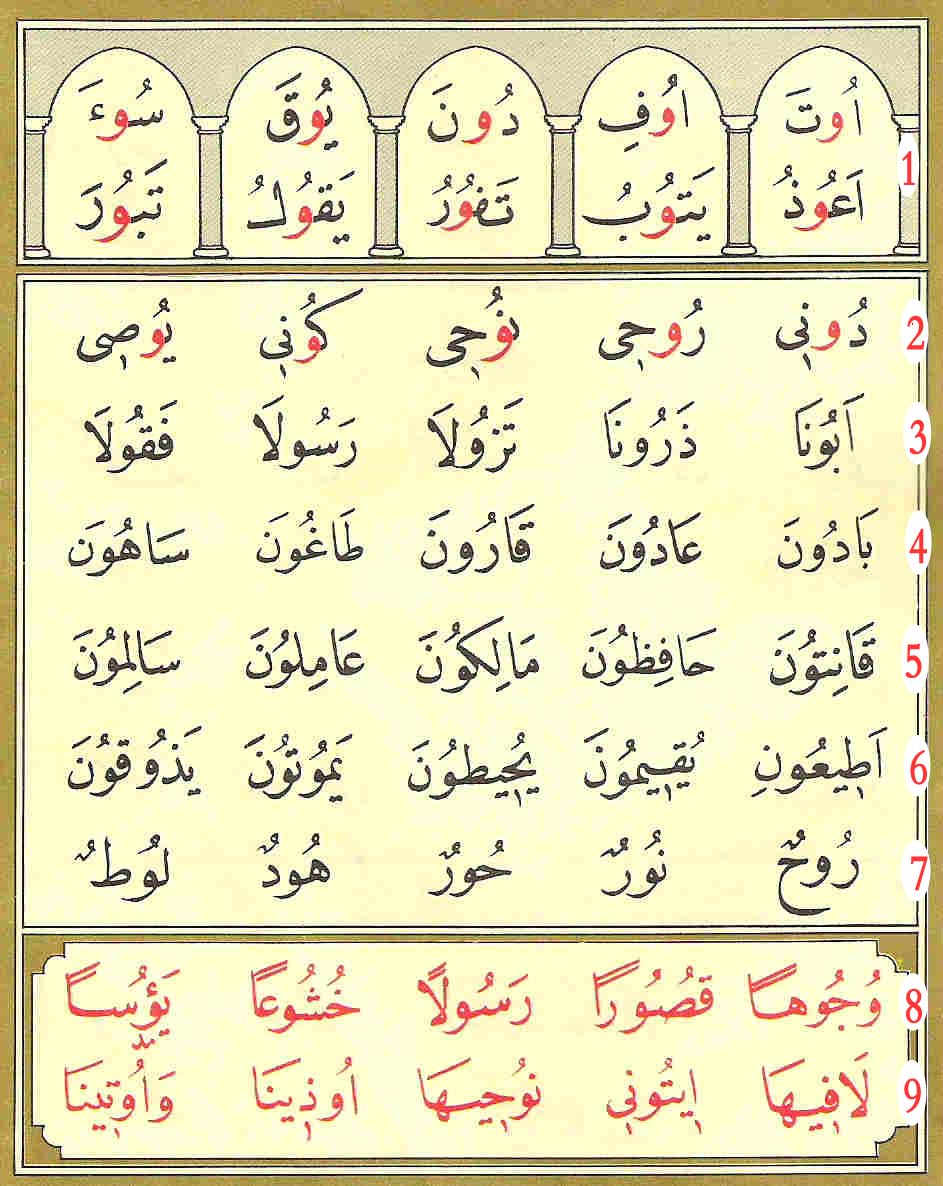 اُوتَ اُوفِ دُونَ يُوقَ سُوءَ
1
اَعُوذُ يَتُوبُ تَفُورُ يَقُولُ تَبُورَ
دُونِى رُوحِى نُوحِى كُونِى يُوصِى 2
اَبُونَا ذَرُونَا تَزُولَا رَسُولَا فَقُولَا 3
بَادُونَ عَادُونَ قَارُونَ طَاغُونَ سَاهُونَ 4
قَانِتُونَ حَافِظُونَ مَالِكُونَ عَامِلُونَ سَالِمُونَ 5
اَطِيعُونِ يُقِيمُونَ يُحِيطُونَ يَمُوتُونَ يَذُوقُونَ 6
رُوحٌ نُورٌ حُورٌ هُودٌ لُوطٌ 7
وُجُوهًا قُصُورًا رَسُولًا خُشُوعًا يَؤُسًا 8
مد
لَافِيهَا اِيتُونِى نُوحِيهَا اُوذِينَا وَاُوتِينَا 9